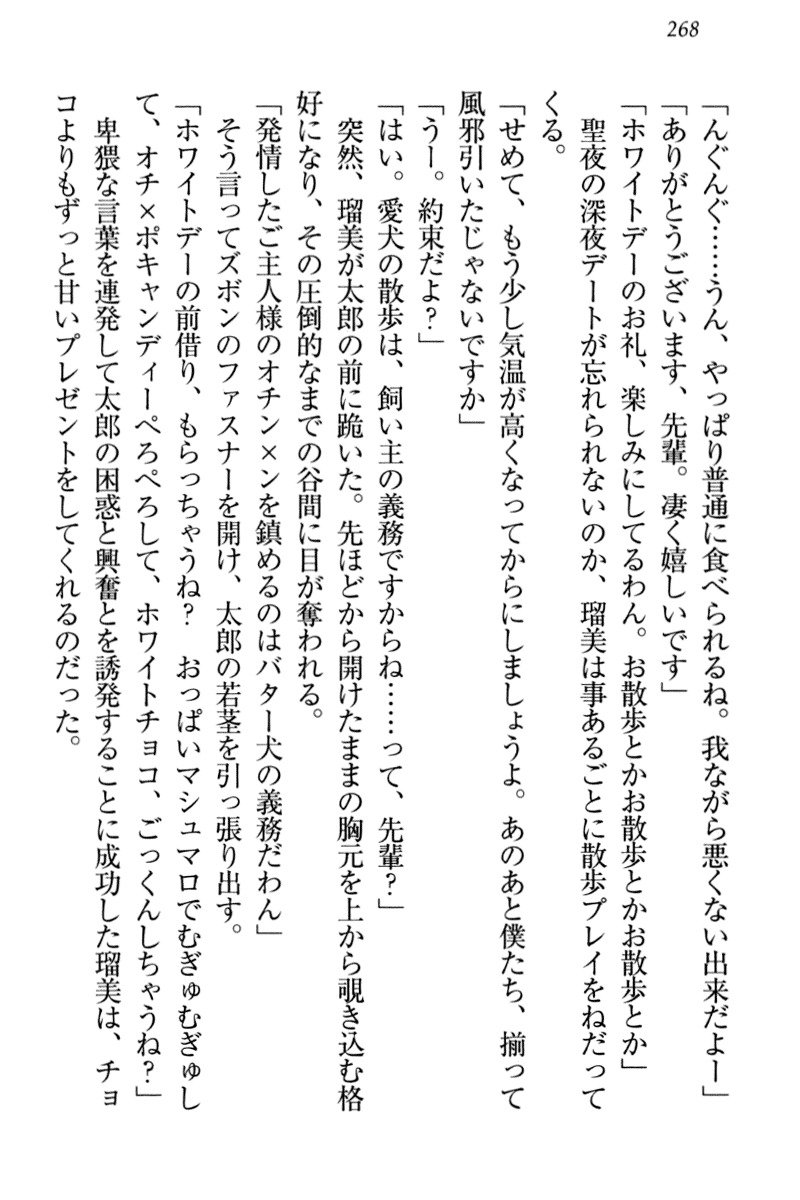 268
「んぐんぐ……うん、やっぱり普通に食べられるね。我ながら悪くない出来だよー」
「ありがとうございます、先輩。凄く嬉しいです」
「ホワイトデーのお礼、楽しみにしてるわん。お散歩とかお散歩とかお散歩とか」
　聖夜の深夜デートが忘れられないのか、瑠美は事あるごとに散歩プレイをねだって
くる。
「せめて、もう少し気温が高くなってからにしましょうよ。あのあと僕たち、揃って
風邪引いたじゃないですか」
「うー。約束だよ？」
「はい。愛犬の散歩は、飼い主の義務ですからね……って、先輩？」
　突然、瑠美が太郎の前に跪いた。先ほどから開けたままの胸元を上から覗き込む格
好になり、その圧倒的なまでの谷間に目が奪われる。
「発情したご主人様のオチン×ンを鎮めるのはバター犬の義務だわん」
　そう言ってズボンのファスナーを開け、太郎の若茎を引っ張り出す。
「ホワイトデーの前借り、もらっちゃうね？　おっぱいマシュマロでむぎゅむぎゅし
て、オチ×ポキャンディーぺろぺろして、ホワイトチョコ、ごっくんしちゃうね？」
　卑猥な言葉を連発して太郎の困惑と興奮とを誘発することに成功した瑠美は、チョ
コよりもずっと甘いプレゼントをしてくれるのだった。